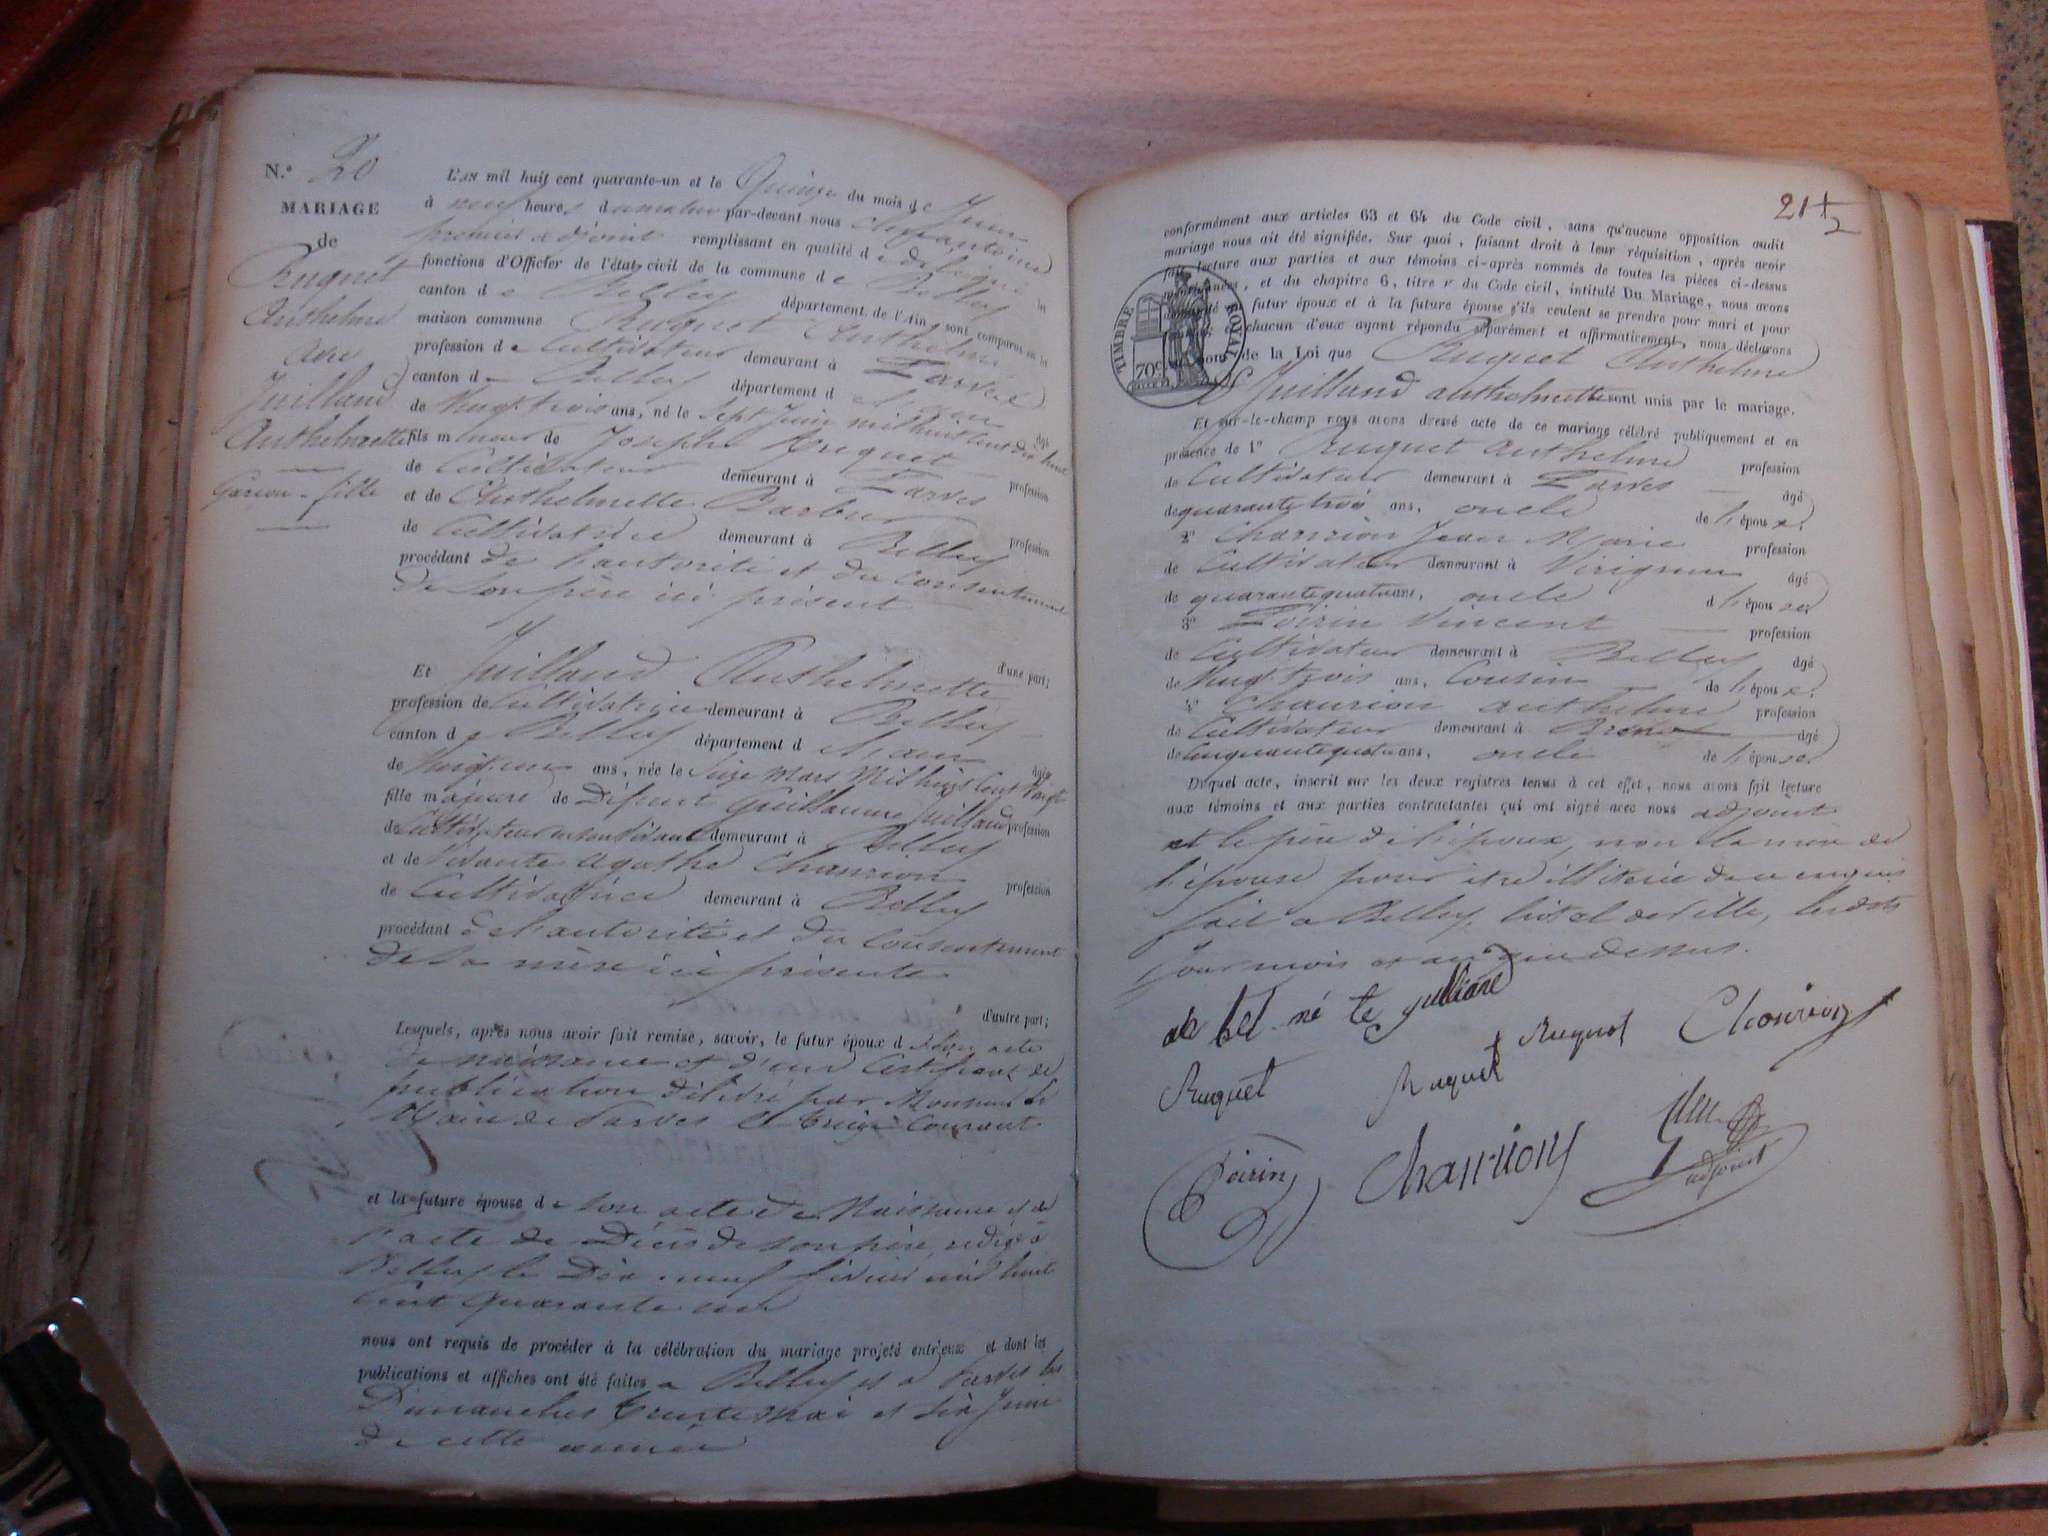 N.º 20
MARIAGE
de
Ruguet
Anthelme
Avec
Juilland
Anthelmette
Garçon - fille
L'AN mil huit cent quarante-un et le Quinze du mois de Juin
à neuf heures du matin par-devant nous
premier adjoint remplissant en qualité de délégué les
fonctions d'Officier de l'état civil de la commune de Belley
canton de Belley département de l'Ain, sont comparus en la
maison commune Ruguet Anthelme
profession de Cultivateur demeurant à Parves
canton de Belley département de l'ain âgé
de vingt trois ans, né le Sept Juin mil huit cent dix huit
fils mineur de Joseph Ruguet profession
de Cultivateur demeurant à Parves
et de Anthelmette Barbier profession
de Cultivatrice demeurant à Belley
procédant de l'autorité et du consentement
de son père ici présent
d'une part;
Et Juilland Anthelmette
profession de Cultivatrice demeurant à Belley
canton de Belley département de l'ain âgée
de Vingt un ans, née le Seize Mars Mil huit Cent Vingt
fille majeure de Défunt Guillaume Juilland profession
de Cultivateur en son vivant demeurant à Belley
et de Vivante Agathe Chanrion profession
de Cultivatrice demeurant à Belley
procédant de l'autorité et du Consentement
de Sa mère ici présente
d'autre part;
Lesquels, après nous avoir fait remise, savoir, le futur époux de Son acte
de naissance et d'un Certificat de
publication délivré par Monsieur le
Maire de Parves le treize Courant
et la future épouse de son acte de Naissance et de
l'acte de Décès de son père, rédigé à
Belley le Dix-neuf février mil huit
Cent Quarante un
nous ont requis de procéder à la célébration du mariage projeté entr'eux et dont les
publications et affiches ont été faites à Belley et à Parves les
Dimanches trente Mai et Six Juin
de cette année
21
2
conformément aux articles 63 et 64 du Code civil, sans qu'aucune opposition audit
mariage nous ait été signifiée. Sur quoi, faisant droit à leur réquisition, après avoir
fait lecture aux parties et aux témoins ci-après nommés de toutes les pièces ci-dessus
mentionnées, et du chapitre 6, titre v du Code civil, intitulé Du Mariage, nous avons
demandé au futur époux et à la future épouse s'ils veulent se prendre pour mari et pour
chacun d'eux ayant répondu séparément et affirmativement, nous déclarons
au nom de la Loi que Ruguet Anthelme
TIMBRE ROYAL
70c
Et Juilland anthelmette sont unis par le mariage.
Et sur-le-champ nous avons dressé acte de ce mariage célébré publiquement et en
présence de 1º Ruguet anthelme profession
de Cultivateur demeurant à Parves âgé
de quarante trois ans, oncle de l'époux.
2º Chanrion Jean Marie profession
de Cultivateur demeurant à Virignin âgé
de quarante quatre ans, oncle d l'épouse
3º Poirin Vincent profession
de Cultivateur demeurant à Belley âgé
de Vingt trois ans, Cousin de l'époux.
4º Chanrion anthelme profession
de Cultivateur demeurant à âgé
de Cinquante quatre ans, oncle de l'épouse
Duquel acte, inscrit sur les deux registres tenus à cet effet, nous avons fait lecture
aux témoins et aux parties contractantes qui ont signé avec nous adjoint
et le père de l'époux, non la mère de
l'épouse pour être illitérée de ce enquis
fait à Belley, hôtel de Ville, lesdits
Jour mois et an que dessus.
juilliane
Ruguet Chanrion
Ruguet Ruguet
Poirin Chanrion
adjoint